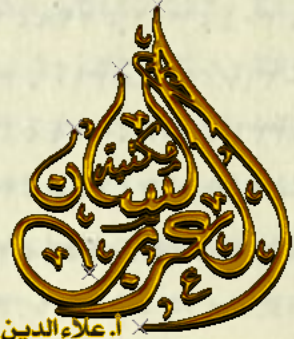 مكتبة
لسان
العرب
أ. علاء الدين